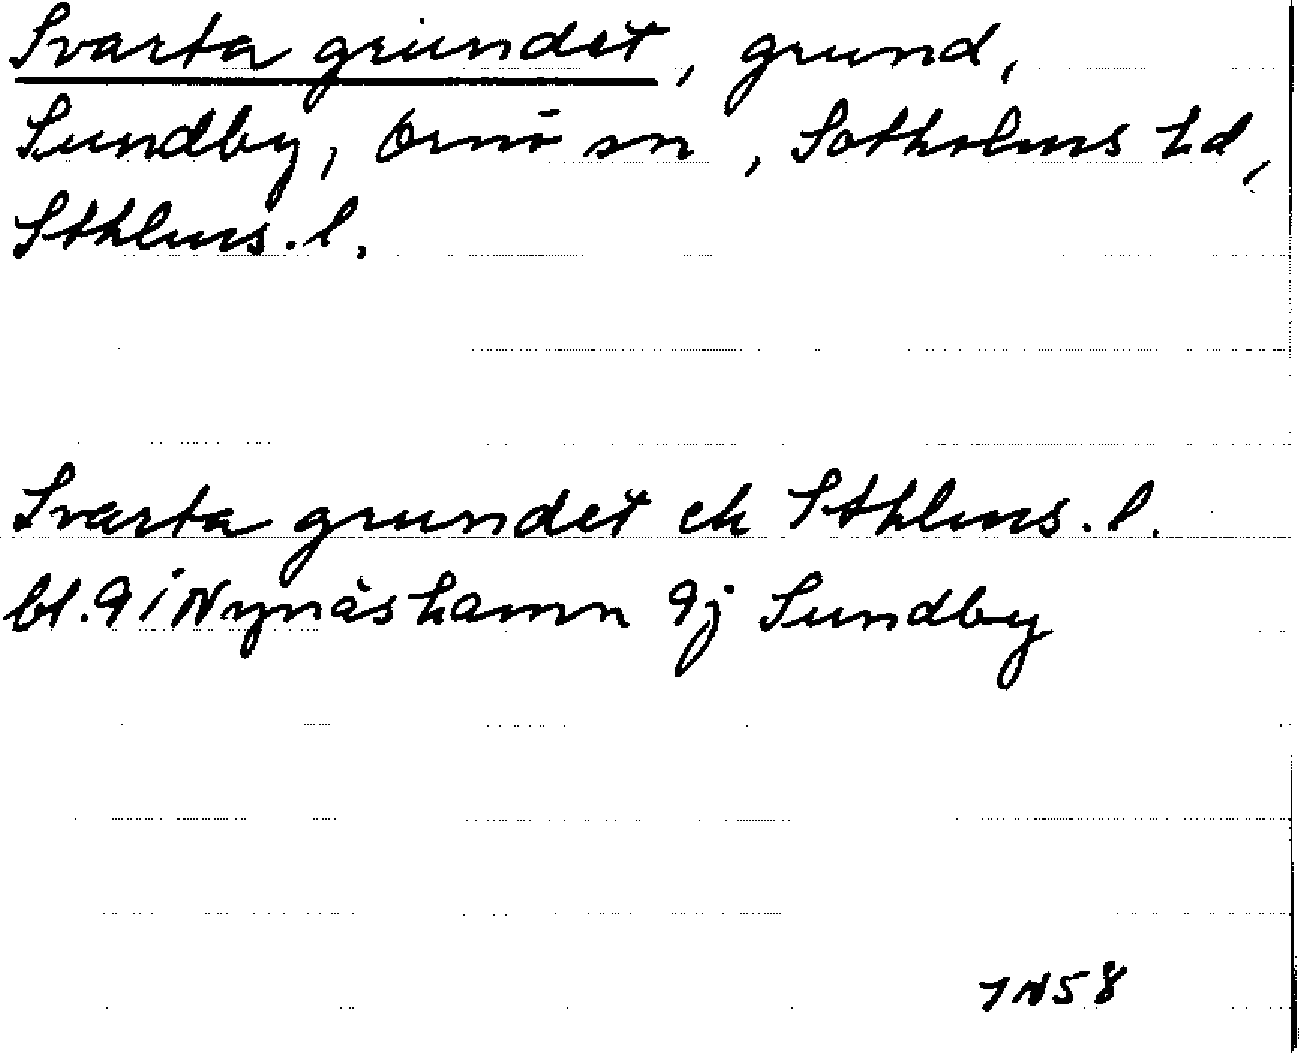 Svarta grundet, grund,
Sundby, Ornö sn, Sotholms hd,
Sthlms. l.
Svarta grundet ek Sthlms. l.
bl. 9 i Nynäshamn 9j Sundby
7N58